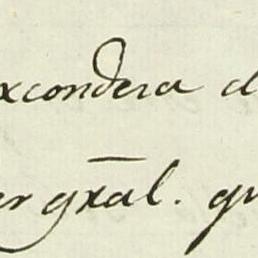 xcondera d
er gral. qu